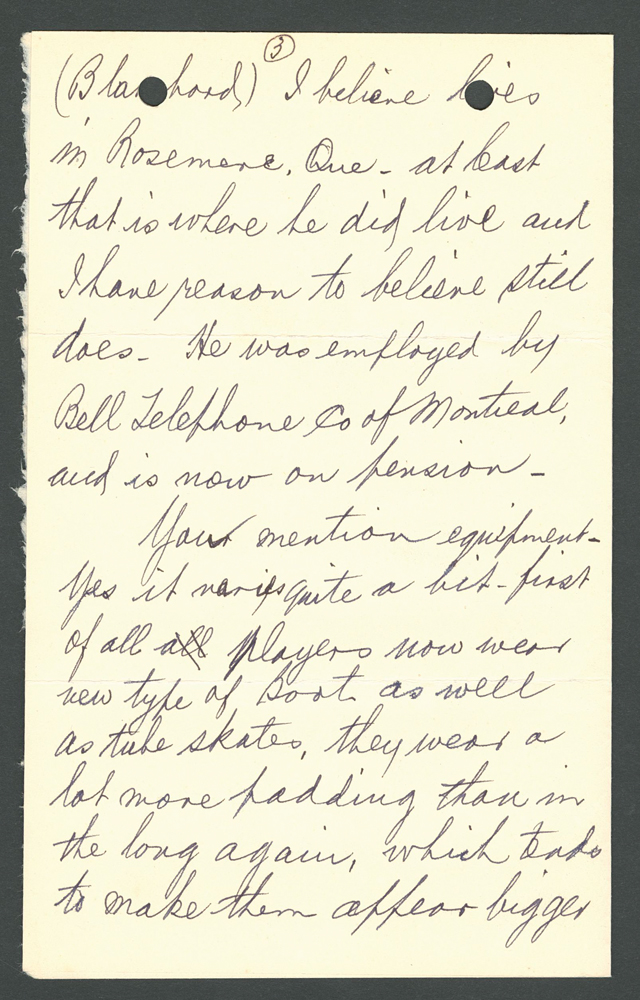 3
(Blanchard) I believe lives
in Rosemere, Que - at least
that is where he did live and
I have reason to believe still
does - He was employed by
Bell Telephone Co of Montreal,
and is now on pension -
Your mention equipment -
Yes it varies quite a bit - first
of all all players now wear
new type of Boot as well
as tube skates, they wear a
lot more padding than in
the long again, which tends
to make them appear bigger